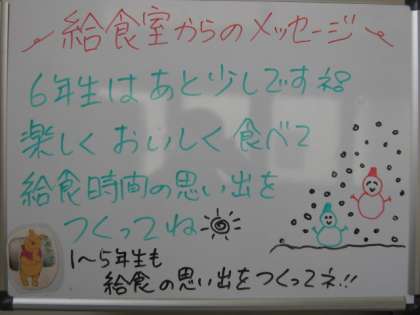 給食室からのメッセージ
6年生はあと少しですネ。
楽しくおいしく食べて
給食時間の思い出を
つくってね
1〜5年生も
給食の思い出をつくってネ!!